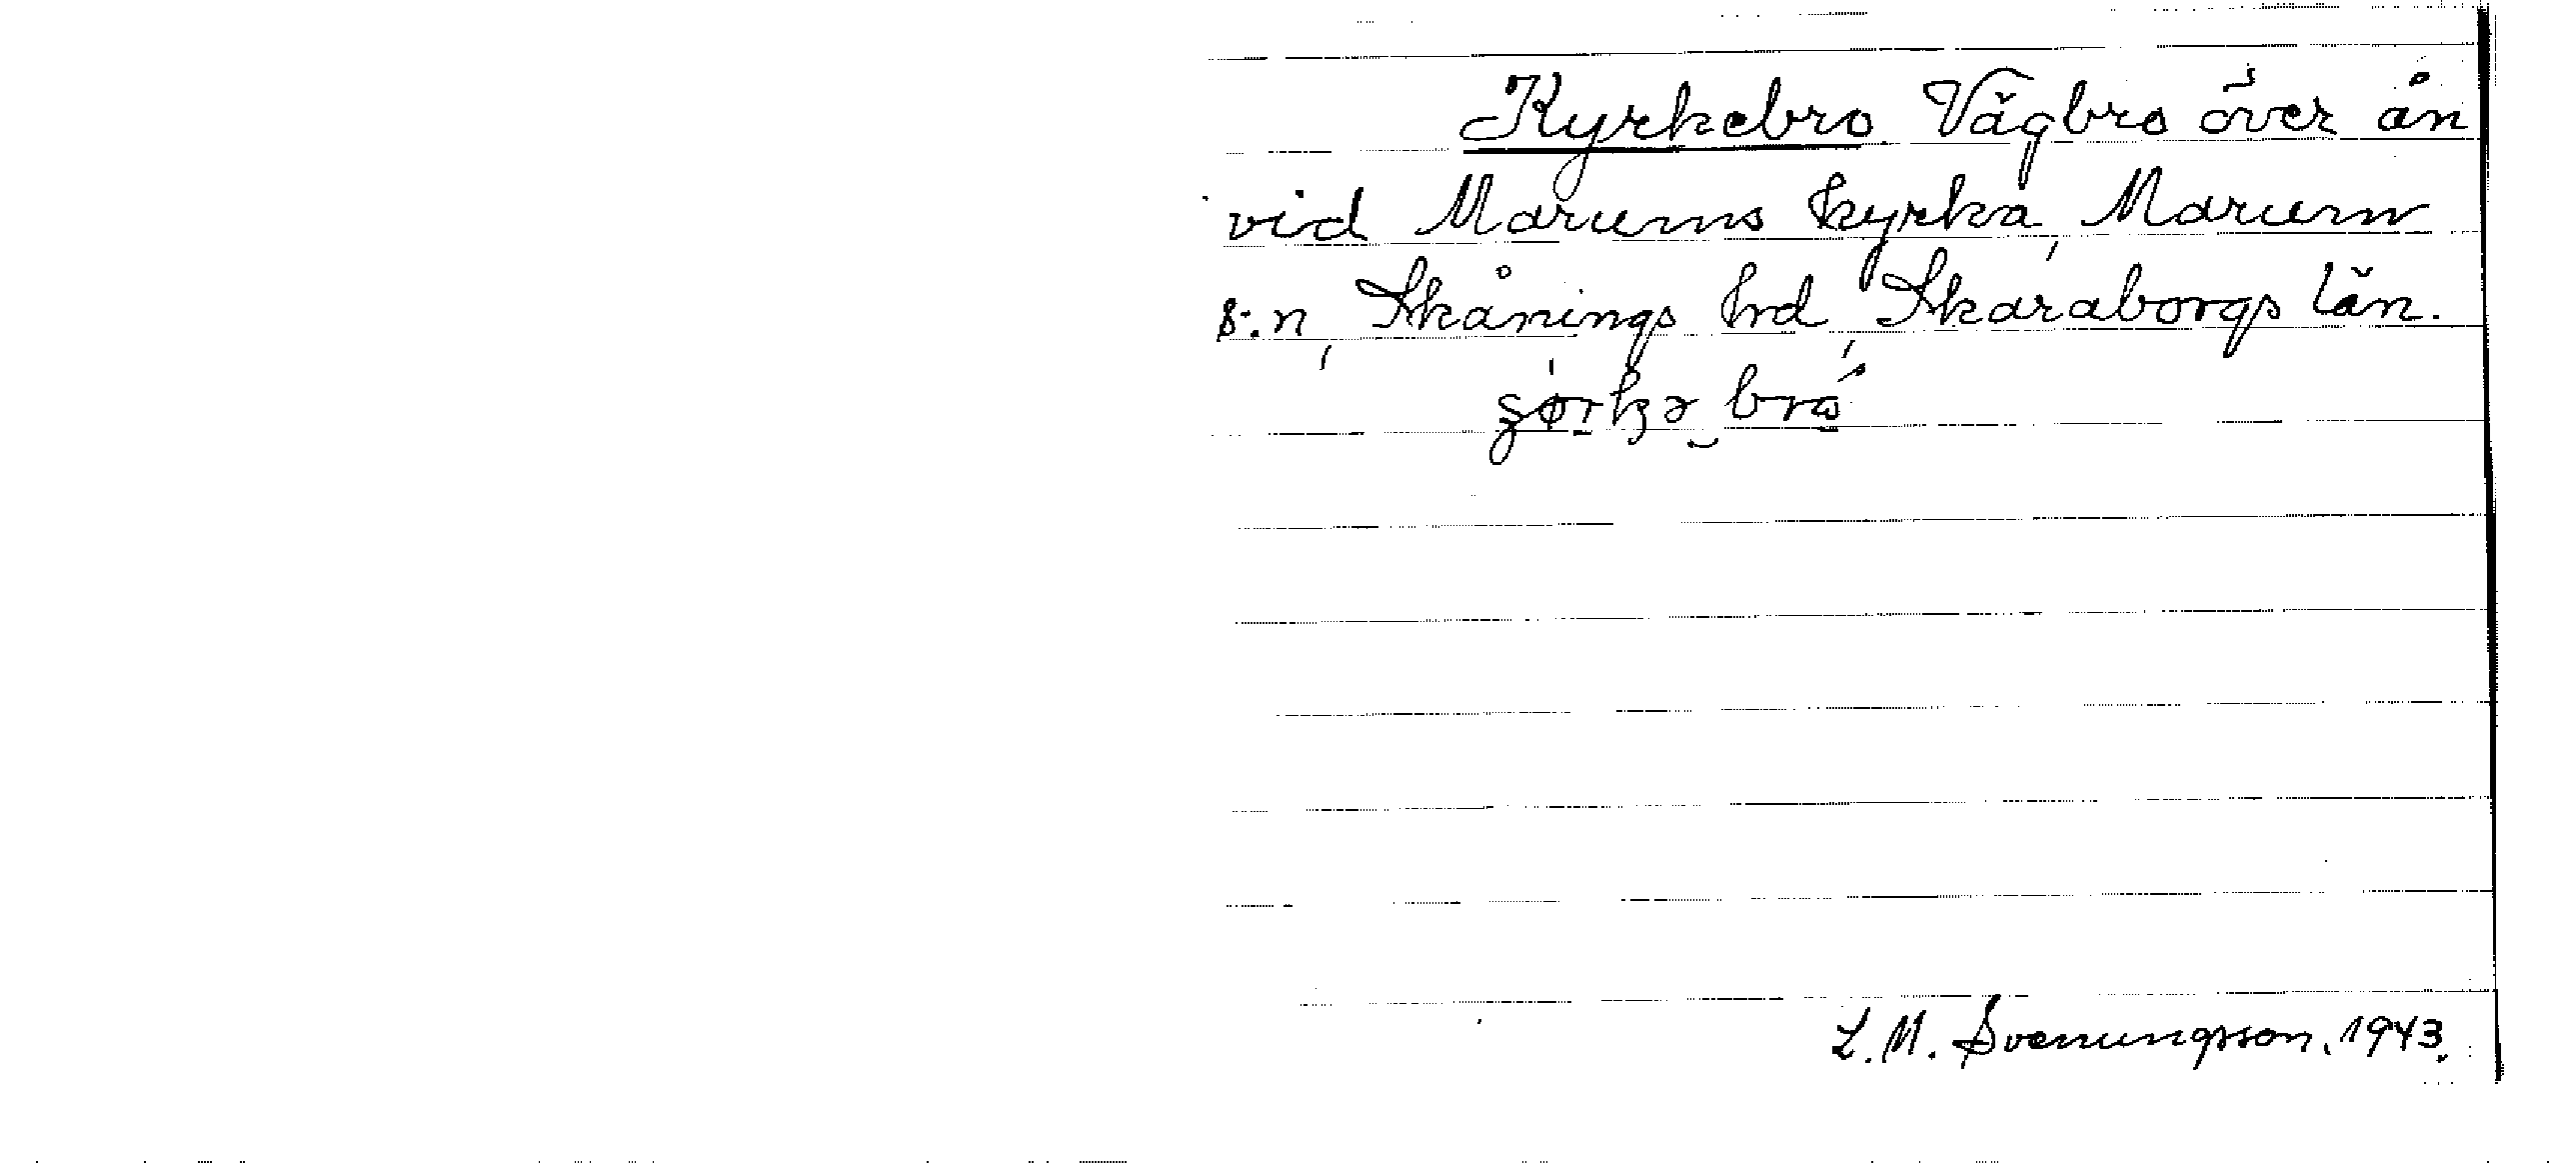 Kyrkebro Vägbro över ån
vid Marums kyrka, Marum
s:n, Skånings hrd, Skaraborgs län.
L. M. Svenungsson. 1943.